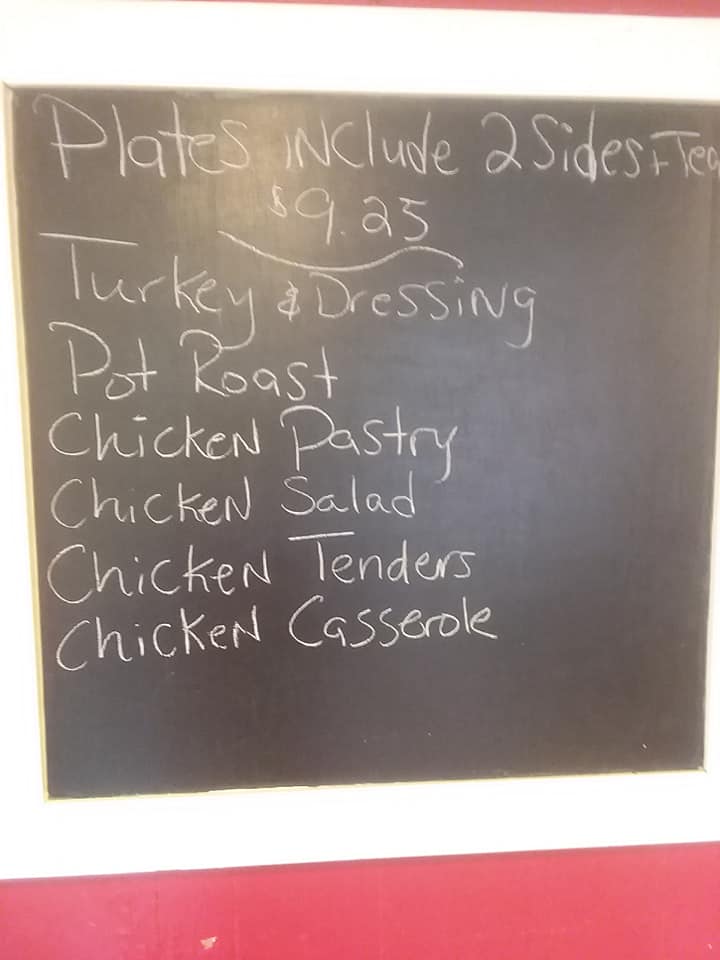 Plates include 2 Sides + Tea
$9.25
Turkey & Dressing
Pot Roast
Chicken Pastry
Chicken Salad
Chicken Tenders
Chicken Casserole